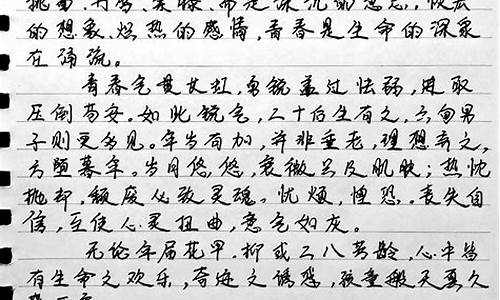 桃面、丹唇、柔膝,而是深沉的意志,恢宏
的想象、炽热的感情,青春是生命的深泉
在涌流。
青春气贯长虹,勇锐盖过怯弱,进取
压倒苟安。如此锐气,二十后生有之,六旬男
子则更多见。年岁有加,并非垂老,理想弃之,
方堕暮年。岁月悠悠,衰微只及肌肤;热忱
抛却,颓废必致灵魂。忧烦,惶恐。丧失自
信,至使心灵扭曲,意气如灰。
无论年届花甲,抑或二八芳龄,心中皆
有生命之欢乐,奇迹之诱惑,孩童般天真久